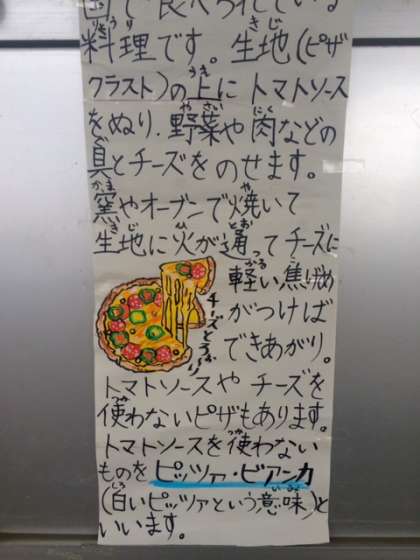 国で食べられている
料理です。生地(ピザ
クラスト)の上にトマトソース
をぬり、野菜や肉などの
具とチーズをのせます。
窯やオーブンで焼いて
生地に火が通ってチーズに
軽い焦げめ
がつけば
できあがり。
チーズとろ〜り
トマトソースや チーズを
使わないピザもあります。
トマトソースを使わない
ものを ピッツァ・ビアンカ
(白いピッツァという意味)と
いいます。